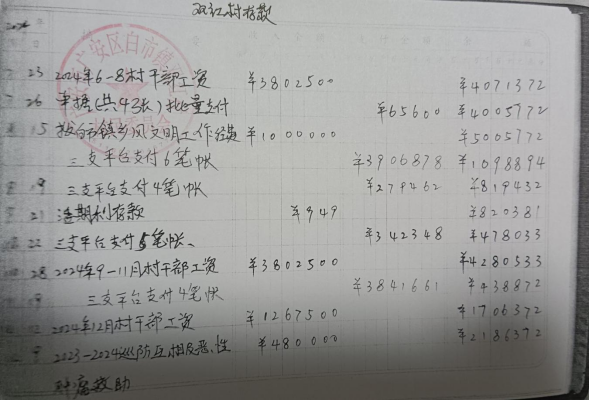 双江村存款
2024
23 2024年6-8村干部工资 ¥3802500 ¥4071372
26 单据(共43张)批量支付 ¥65600 ¥4005772
15 拨白市镇乡风文明工作经费 ¥1000000 ¥5005772
三支平台支付6笔帐 ¥3906878 ¥1098894
19 三支平台支付4笔帐 ¥279462 ¥819432
21 活期利存款 ¥949 ¥820381
22 三支平台支付5笔帐、 ¥342348 ¥478033
28 2024年9-11月村干部工资 ¥3802500 ¥4280533
三支平台支付4笔帐 ¥3841661 ¥438872
2024年12月村干部工资 ¥1267500 ¥1706372
9 2023-2024巡防互相及恶性 ¥480000 ¥2186372
肿瘤救助
广安区白市镇